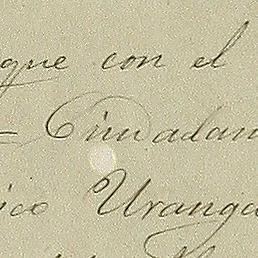 que con el
— Ciudadan
ico Uranga